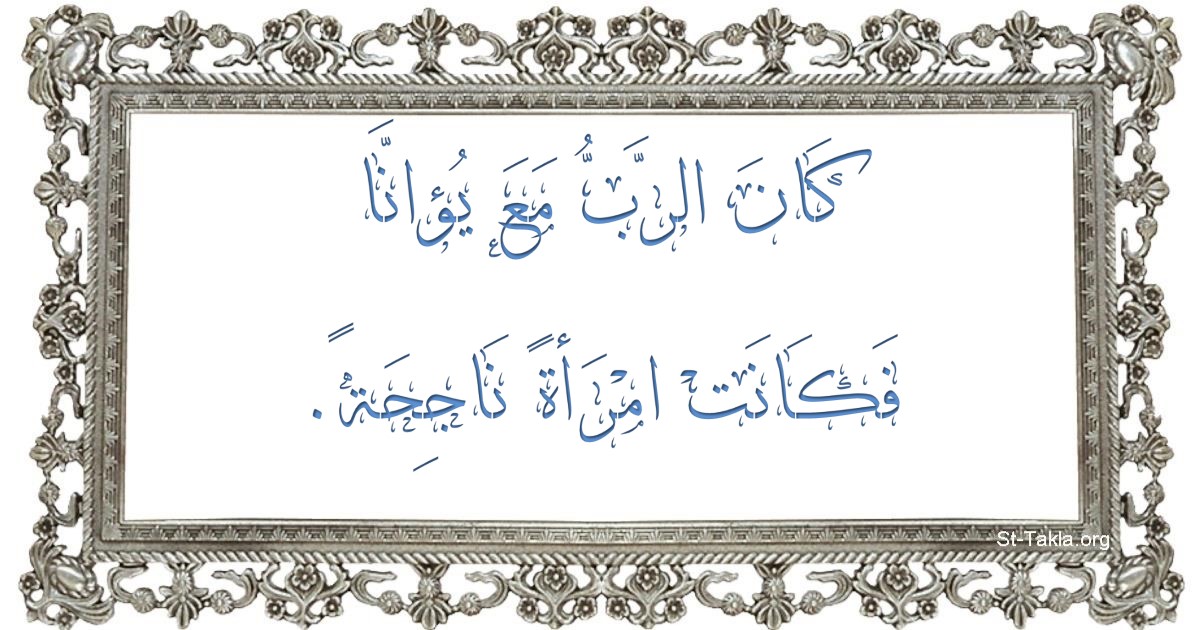 كَانَ الرَّبُّ مَعَ يُؤانَّا
فَكَانَتْ امْرَأَةً نَاجِحَةً.
St-Takla.org